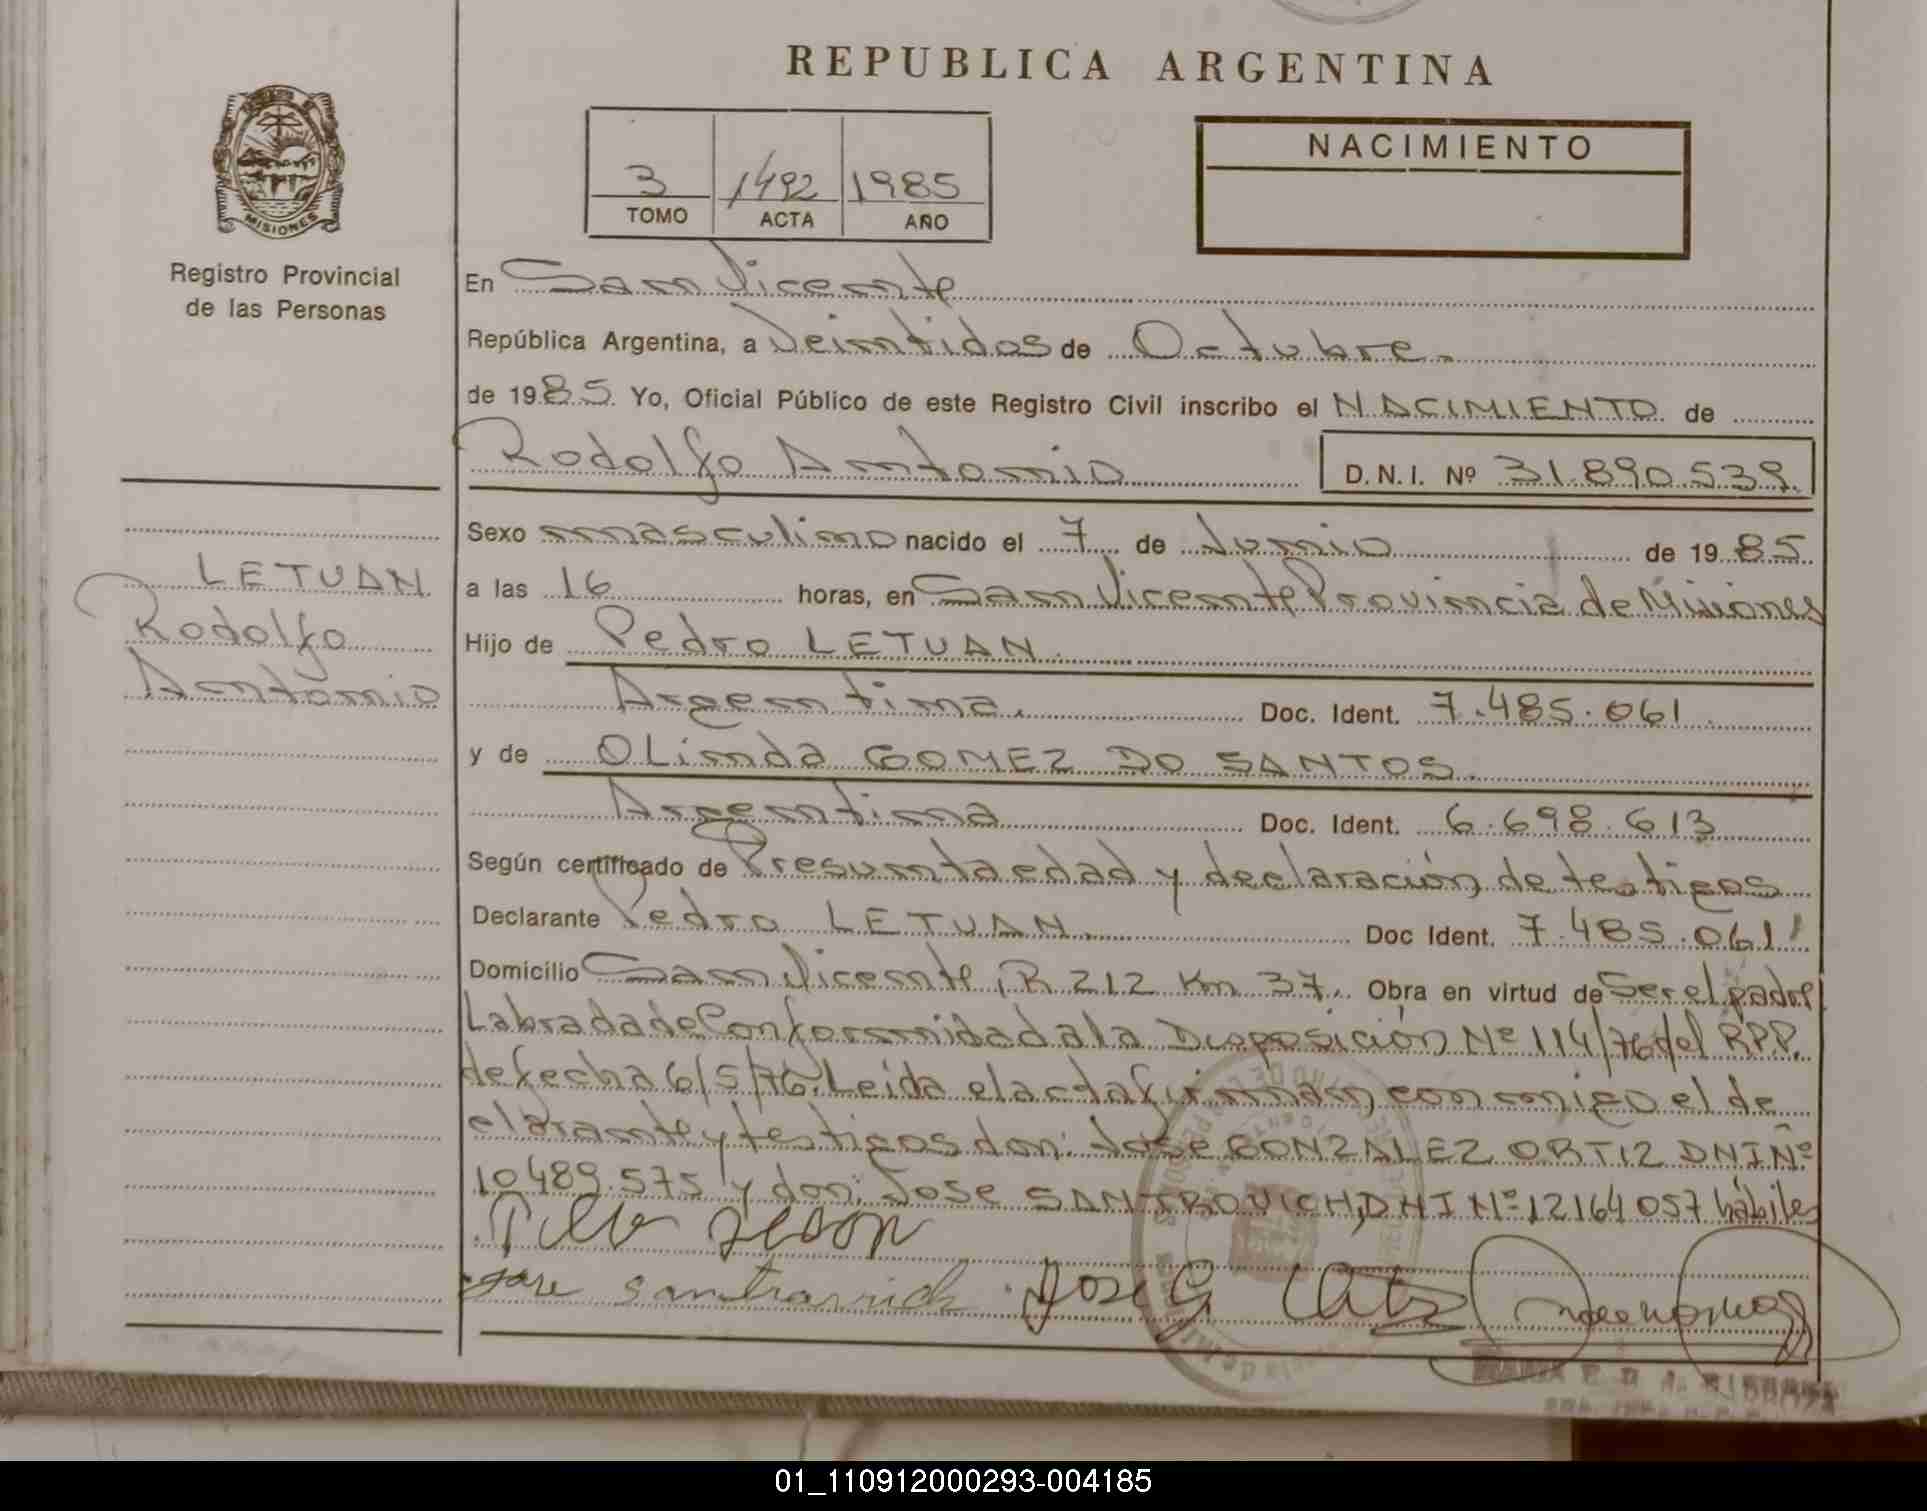 REPUBLICA ARGENTINA
MISIONES
Registro Provincial
de las Personas
3 1492 1985
TOMO ACTA AÑO
NACIMIENTO
En San Vicente
República Argentina, a Veintidos de Octubre.
de 1985 Yo, Oficial Público de este Registro Civil inscribo el NACIMIENTO de
Rodolfo Antonio D.N.I. Nº 31.890.539.
Sexo masculino nacido el 7 de Junio de 1985
LETUAN
Rodolfo
Antonio
a las 16 horas, en San Vicente Provincia de Misiones
Hijo de Pedro LETUAN
Argentina. Doc. Ident. 7.485.061
y de OLinda GOMEZ DO SANTOS.
Argentina Doc. Ident. 6.698.613
Según certificado de Presunta edad y declaración de testigos
Declarante Pedro LETUAN Doc Ident. 7.485.061
Domicilio San Vicente, R 212 Km 37. Obra en virtud de Ser el padre
Labrada de Conformidad a la Disposición Nº 114/76 del RPP.
de fecha 6/5/76. Leida el acta firman con migo el de
clarante y testigos don: Jose GONZALEZ ORTIZ DNI Nº
10489.575 y don: Jose SANTROVICH, DNI Nº 12164057 hábiles
Jose
01_110912000293-004185